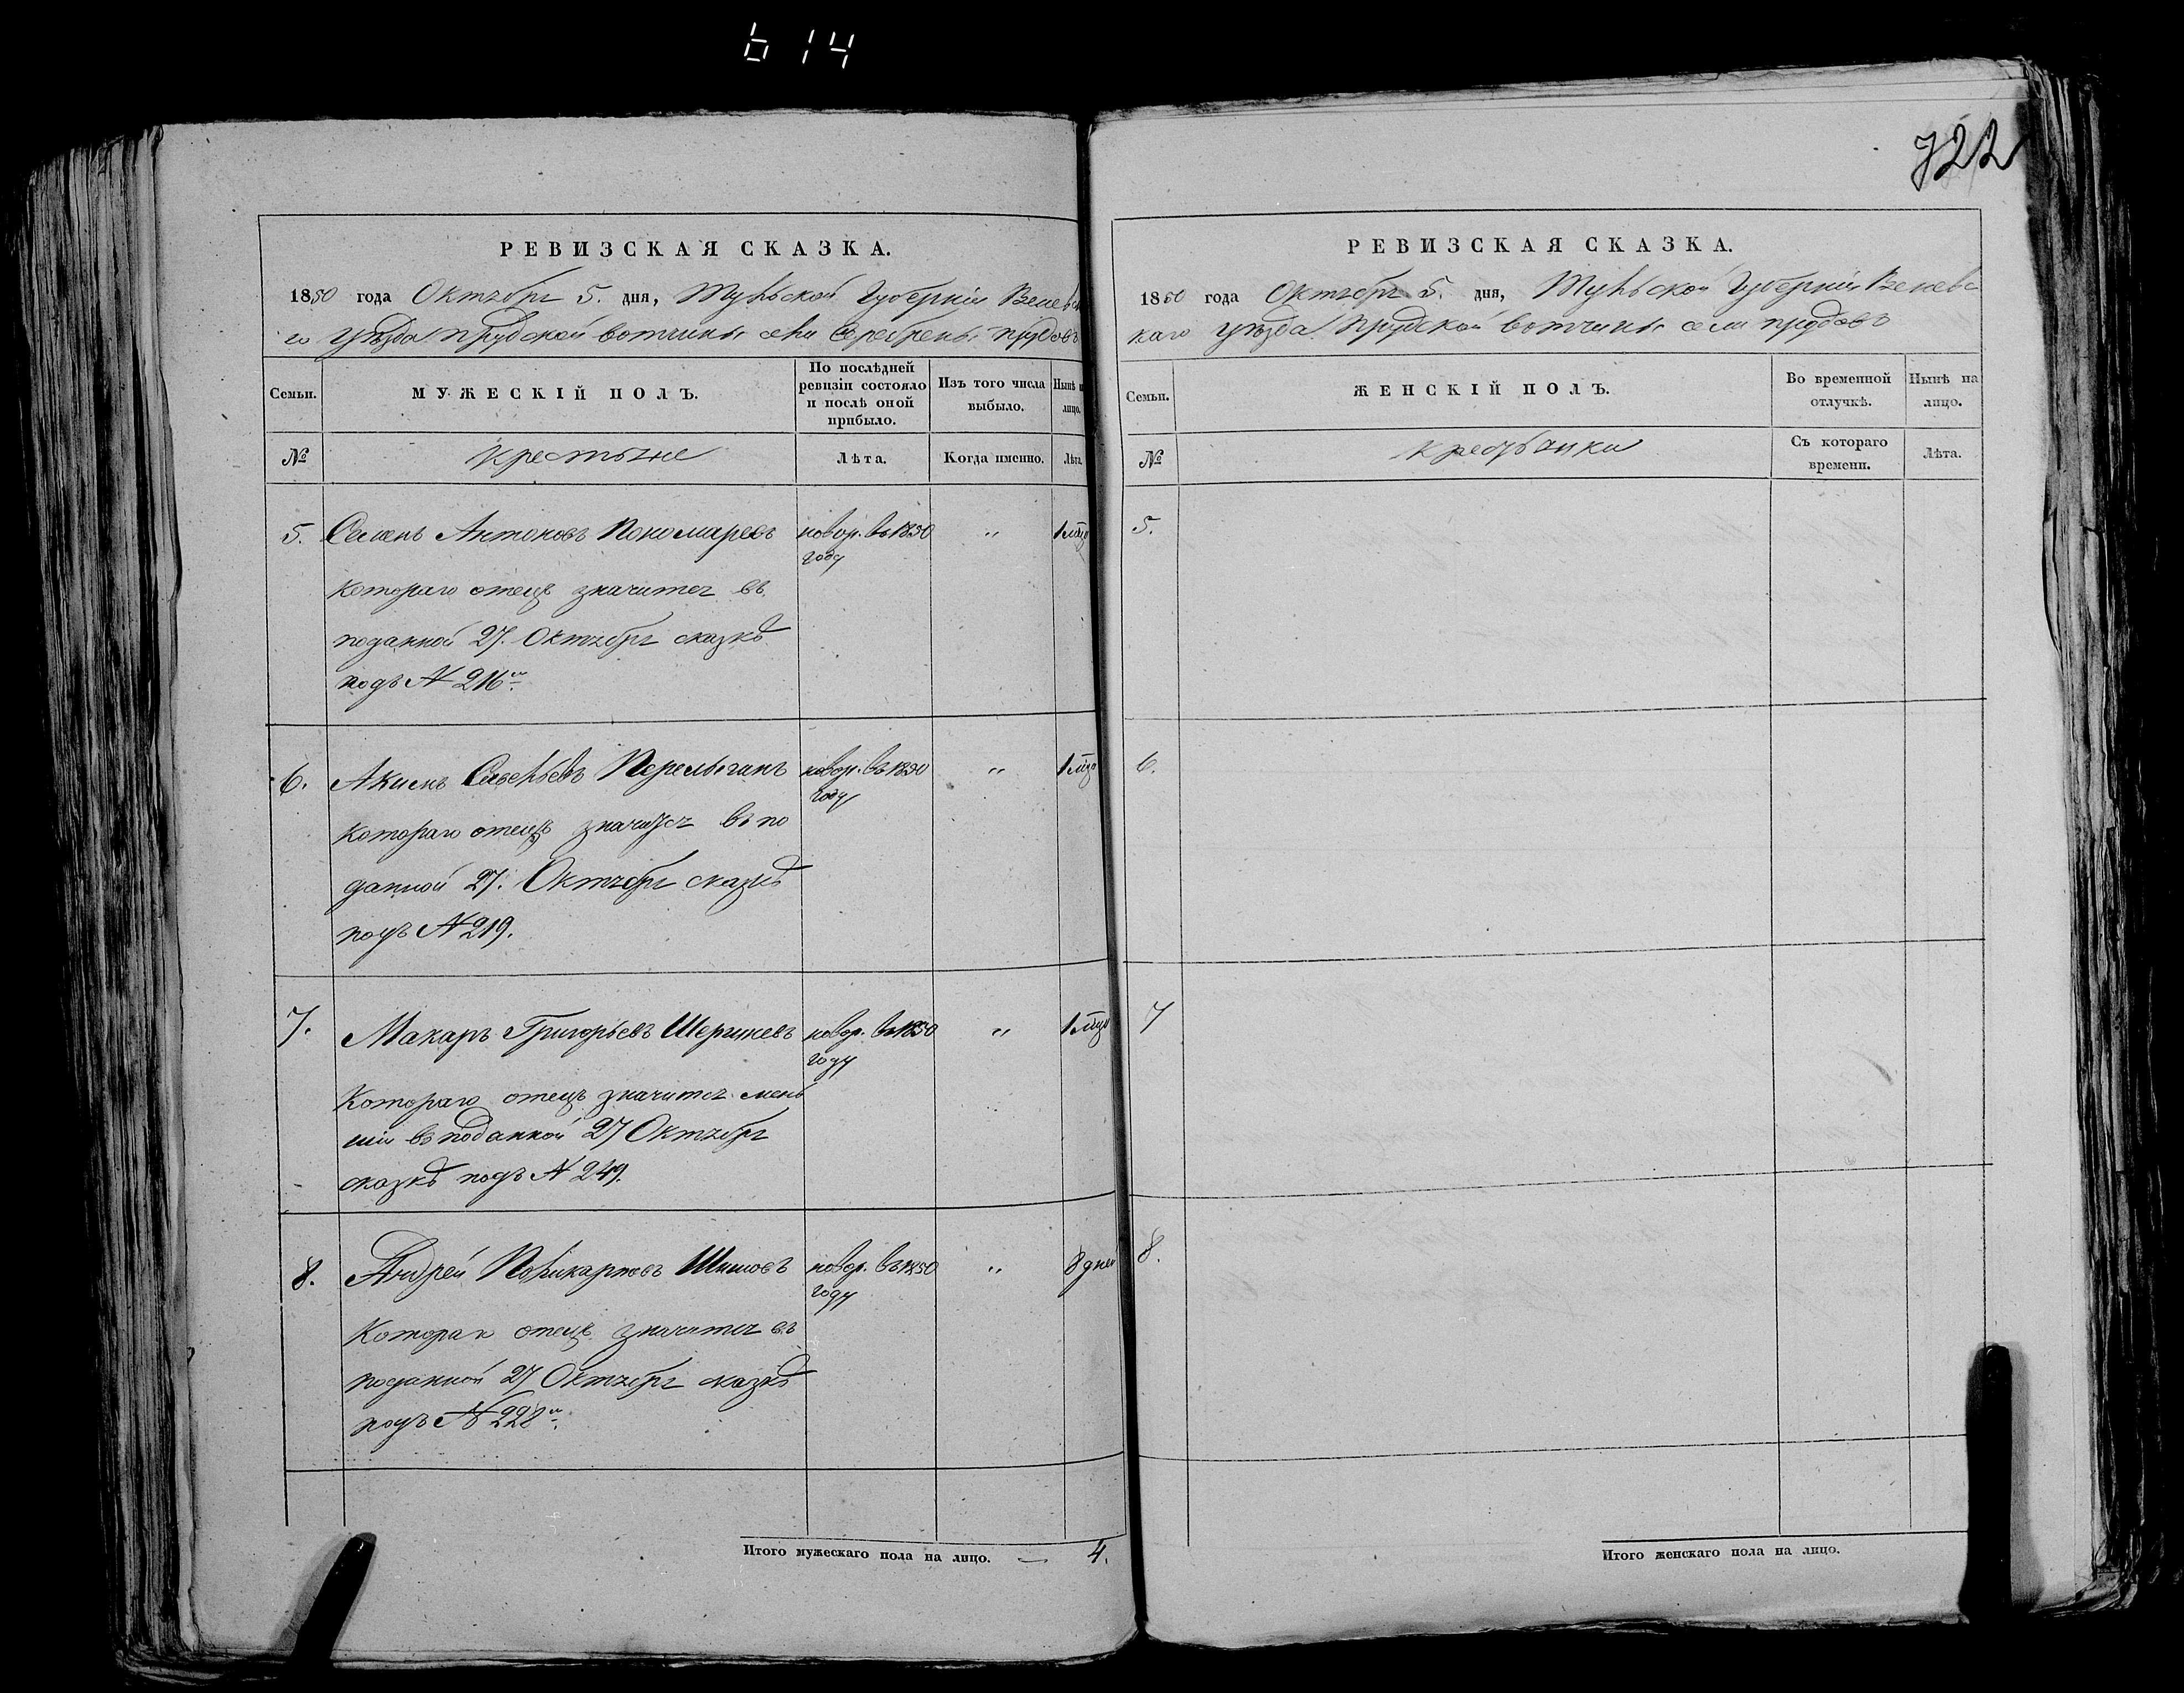 614
722
РЕВИЗСКАЯ СКАЗКА.
1850 года Октября 5. дня, Тульской Губернiи Веневска
го Уѣзда Прудской вотчины села Серебрены Прудовъ
Семьи.
МУЖЕСКІЙ ПОЛЪ.
По послѣдней ревизіи состояло и послѣ оной прибыло.
Изъ того числа выбыло.
Нынѣ на лицо.
№
Крестьяне
Лѣта.
Когда именно.
Лѣта.
5. Семенъ Антоновъ Пономаревъ новор. въ 1850 „ 1 мѣця
году
Котораго отецъ значится въ
поданной 27. Октября сказкѣ
подъ № 216м.
6. Акимъ Савельевъ новор. въ 1850 „ 1 мѣця
году
Котораго отецъ значится въ по
данной 27. Октября сказкѣ
подъ № 219.
7. Макаръ Григорьевъ новор. въ 1850 „ 1 мѣця
году
Котораго отецъ значится мень
шiй въ поданной 27 Октября
сказкѣ подъ № 249.
8. Андрей Поликарповъ Шишовъ новор. въ 1850 „ 8 дней
году
Котораго отецъ значится въ
поданной 27 Октября сказкѣ
подъ № 228м.
Итого мужескаго пола на лицо. — 4.
РЕВИЗСКАЯ СКАЗКА.
1850 года Октября 5. дня, Тульской Губернiи Веневс
каго Уѣзда Прудской вотчины села Прудовъ
Семьи.
ЖЕНСКІЙ ПОЛЪ.
Во временной отлучкѣ.
Нынѣ на лицо.
№
Крестьянки
Съ котораго времени.
Лѣта.
5.
6.
7
8.
Итого женскаго пола на лицо.